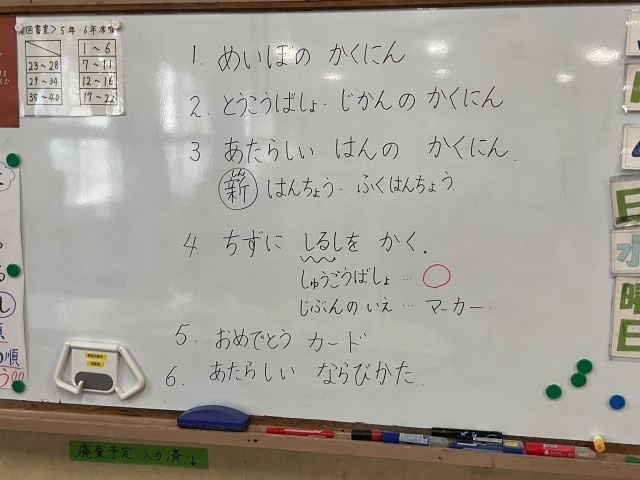 <図書室>5年・6年席順
1〜6
23〜28 7〜11
29〜34 12〜16
35〜40 17〜22
1. めいぼの かくにん
2. とうこうばしょ・じかんの かくにん
3 あたらしい はんの かくにん.
新 はんちょう・ふくはんちょう
4. ちずに しるしを かく.
しゅうごうばしょ… ○
じぶんの いえ… マーカー
5. おめでとう カード
6. あたらしい ならびかた.
日
水
曜
日
し
順
の順
廃棄予定 入力済 ↓